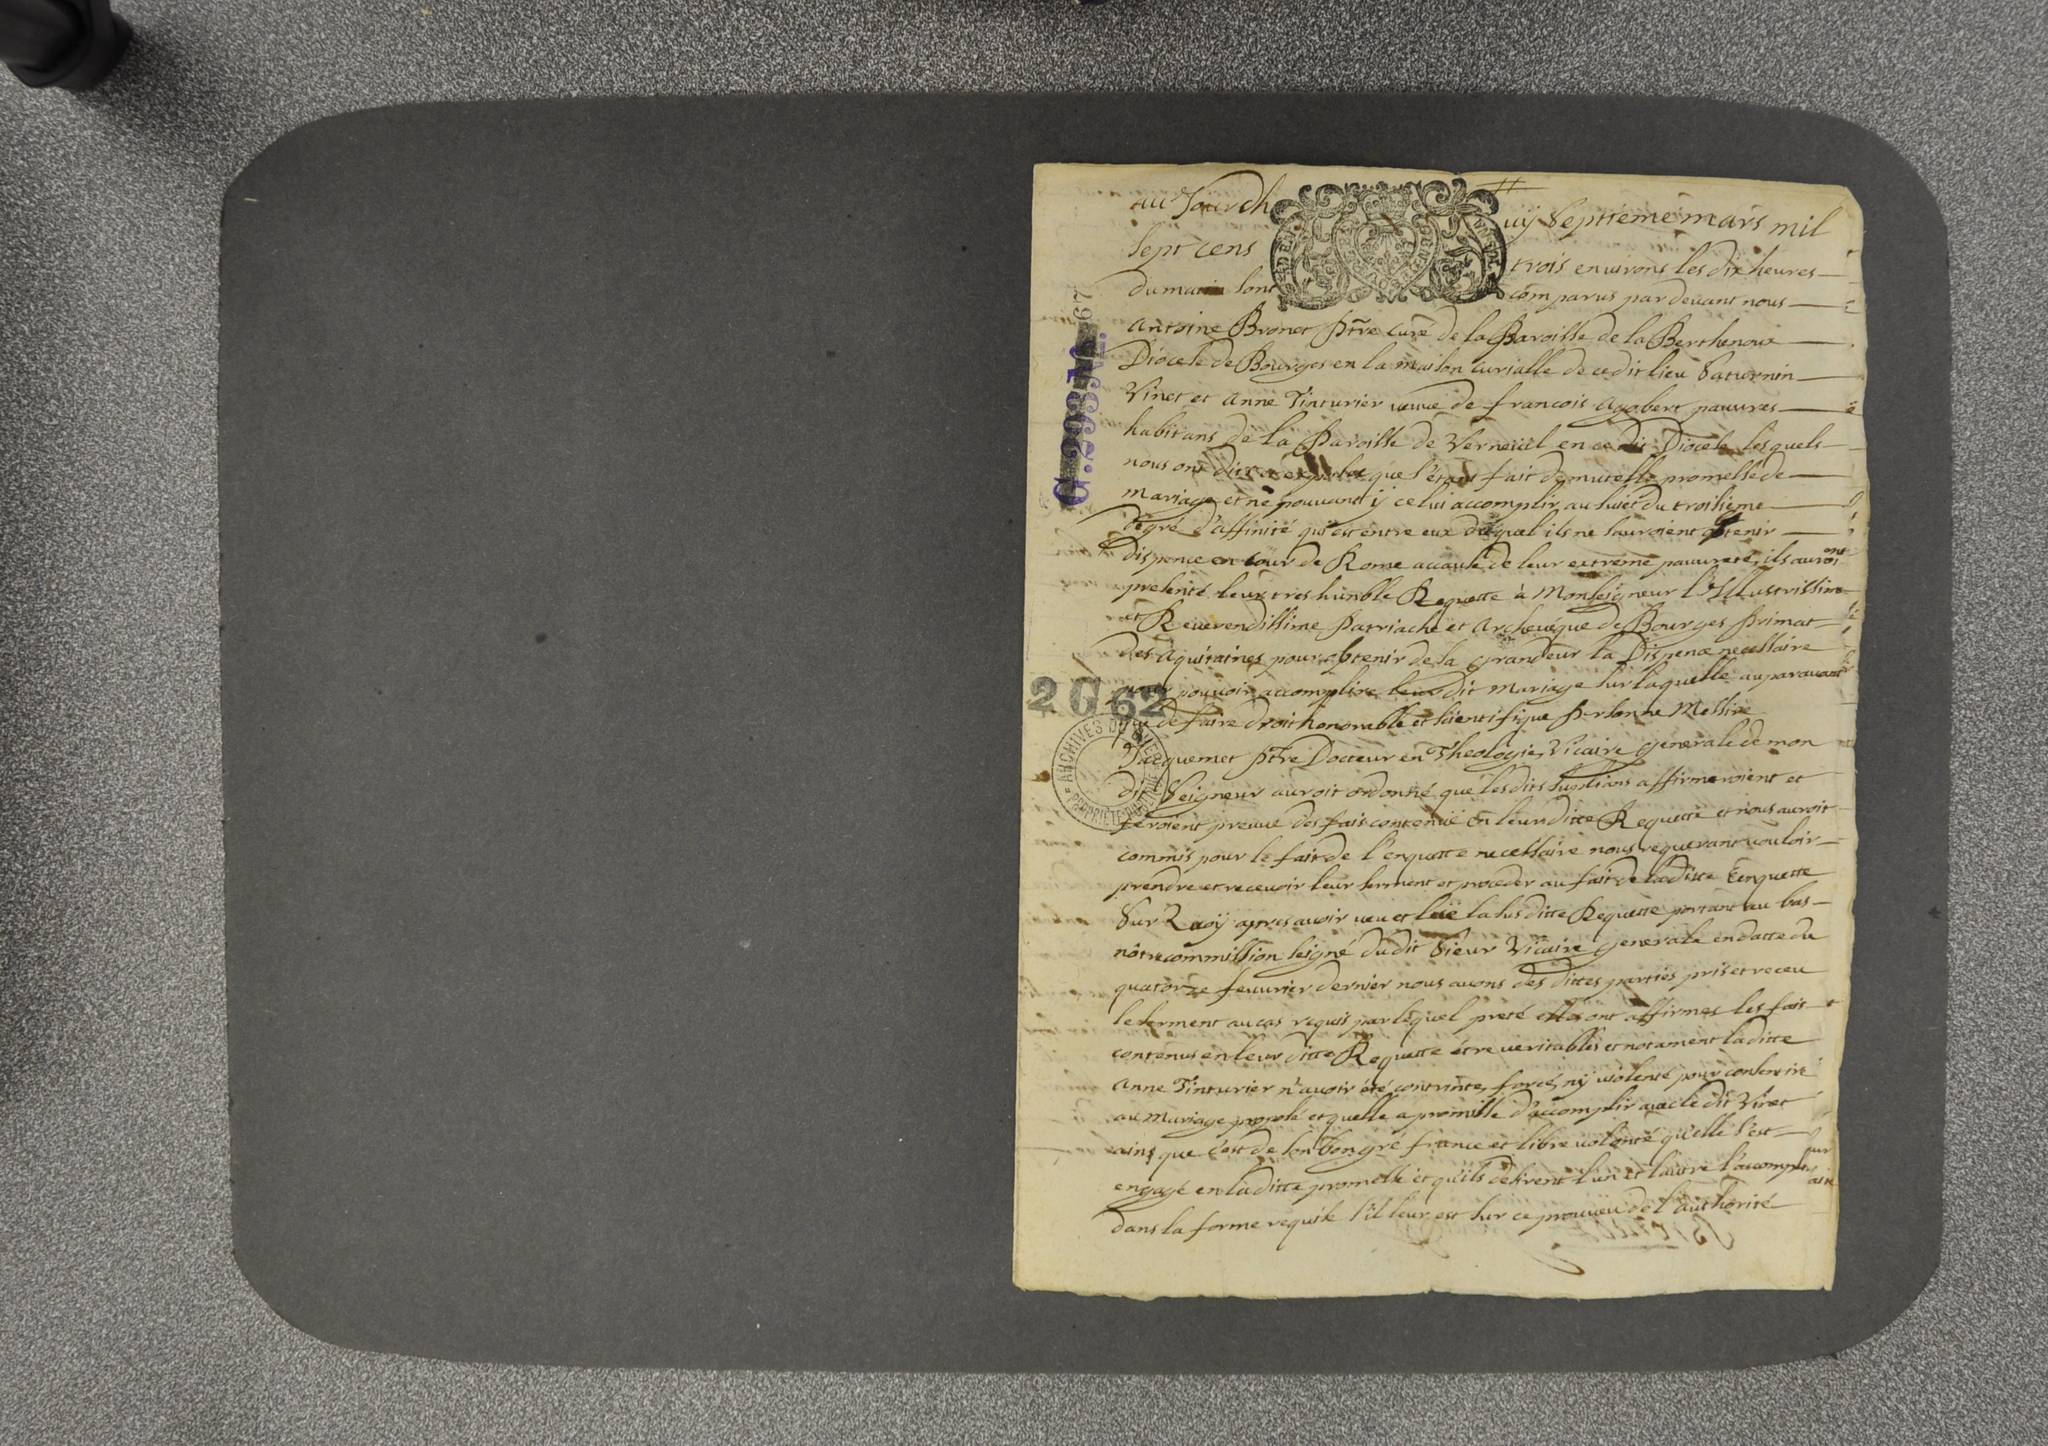 au Jourdh uy Septieme mars mil
sept cens trois environs les dix heures
du matin sont comparus par devant nous
Antoine Bronet ptre curé de la Paroisse de la Berthenoux
Diocese de Bourges en la maison curialle de ce dit lieu Saturnin
Vinet et Anne Tinturier veuve de francois Agobert pauvres
habitans de la Paroisse de Verneüil en ce dit Diocese lesquels
nous ont dit et exposé que s'étant fait de mutelle promesse de
mariage et ne pouvant iceluy accomplir au suiet du troisieme
degré d'affinité qui est entre eux duquel ils ne sauroient obtenir
dispence en cour de Rome accause de leur extreme pauvreté, ils auront
presenté leurs tres humble Requette à Monseigneur l'Illustrissime
et Reverendissime Patriache et Archevéque de Bourges Primat
des Aquitaines pour obtenir de sa Grandeur la Dispence necessaire
pour pouvoir accomplire leur dit mariage sur laquelle auparavant
que de faire droit honorable et scientifique Personne Messire
Jacquemet ptre Docteur en Theologie, Vicaire generale de mon
dit Seigneur auroit ordonné que lesdits supplians affirmeroient et
feroient preuve des fais contenuë en leur ditte Requette et nous auroit
commis pour le fait de l'enquette necessaire nous requerant vouloir
prendre et recevoir leur serment et proceder au fait de la ditte Enquette
Sur Quoÿ apres avoir veu et luë la susditte Requette portant au bas
nôtre commission seigné dudit Sieur Vicaire generale en datte du
quatorze fevvrier dernier nous avons des dittes parties pris et receu
le serment au cas requis par lequel preté elles ont affirmes les fais
contenus en leur ditte Requette étre veritables et notament laditte
Anne Tinturier n'avoir été contrinte, forcé, ny violenté pour consentire
au Mariage proposé et quelle a promisse d'accomplir avec le dit Vinet
ains que c'est de son bon gré france et libre volonté qu'elle s'est
engagé en laditte promesse et qu'ils desirent l'un et lautre l'accomplir
dans la forme requise s'il leur est sur ce prouveu de l'authorité
G. 293 N. 67
2 G 62
ARCHIVES DU CHER
PROPRIÉTÉ PUBLIQUE